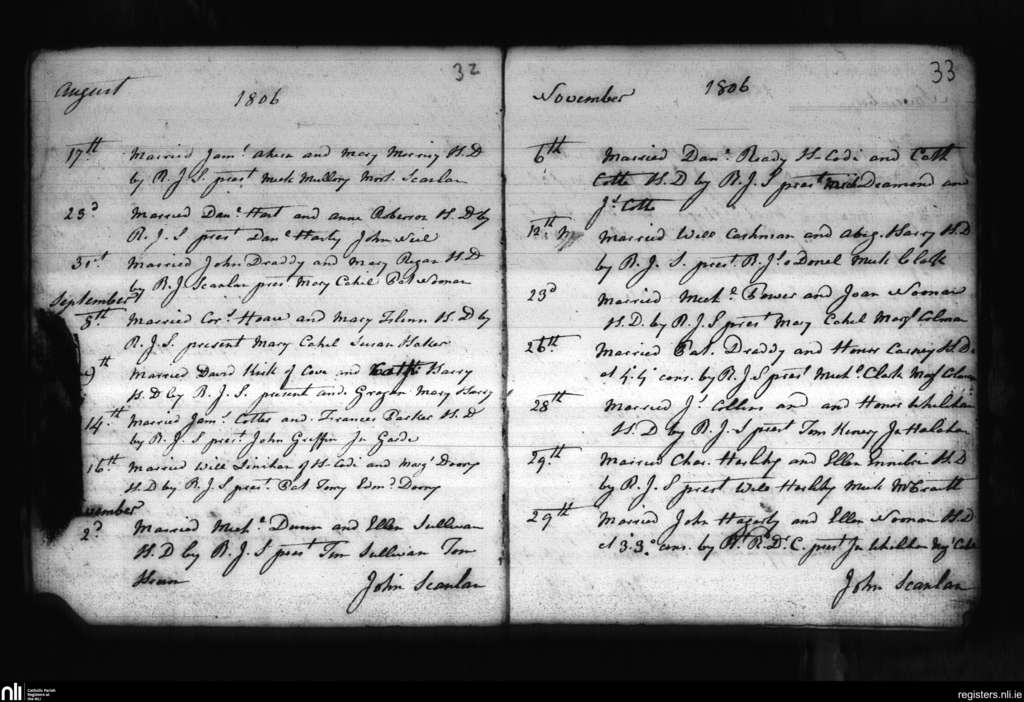 August
1806
32
17th Married Jams. Ahern and Mary Morrisy H.D
by R. J. S. prest. Mick Mullony Mort. Scanlan
23d Married Danl. Hart and Anne Roberson H.D by
R. J. S prest Danl. Harty John Neil
31st Married John Draddy and Mary Regan H.D
by R.J Scanlan prest Mary Cahil Pat Noonan
September
8th Married Cors. Hoare and Mary Flinn H.D by
R. J. S. present Mary Cahel Susan Baker
th Married David Kirk of Cove and Cath Barry
H.D by R. J. S. present and. Mary Barry
14th Married Jams. Cotter and Frances Parker H.D
by R. J. S prest. John Griffin Jn Garde
16th Married Will of H-Codi and Margt
H.D by R. J. S prest. Pat Edmd
vember
2d Married Michl. Dunn and Ellen Sullivan
H.D by R. J. S prest Tim Sullivan Tom
John Scanlan
33
1806
November
6th Married Danl. Ready H-Codi and Cath
Cotte H.D by R. J. S prest Mich Dramond and
Js. Cotte
12th Married Will Cashman and Abig. Barry H.D
by R. J. S. prest. R. Js. oDonel Mick Clark
23d Married Michl. Power and Joan Noonan
H.D. by R. J. S prest Mary Cahel Margt Colman
26th Married Pat. Draddy and Honor Carney H.D.
et 4.4 cons. by R. J. S prest Michl. Clark
28th Married Js. Collins and and Honor Whelhan
H.D by R. J. S prest Tom Kenery Jn Halahan
29th Married Chas. and Ellen H.D
by R. J. S prest Will Mick McCraith
29th Married John Hagerty and Ellen Noonan H.D
et 3.3. cons. by Rt. Rd. Dr. C. prest Jn Whelhan
John Scanlan
nli Catholic Parish
Registers at
the NLI
registers.nli.ie